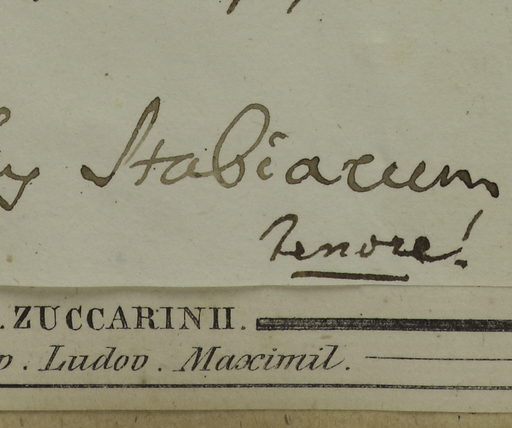 Stabiarum
Tenore!
. ZUCCARINII.
. Ludov. Maximil.